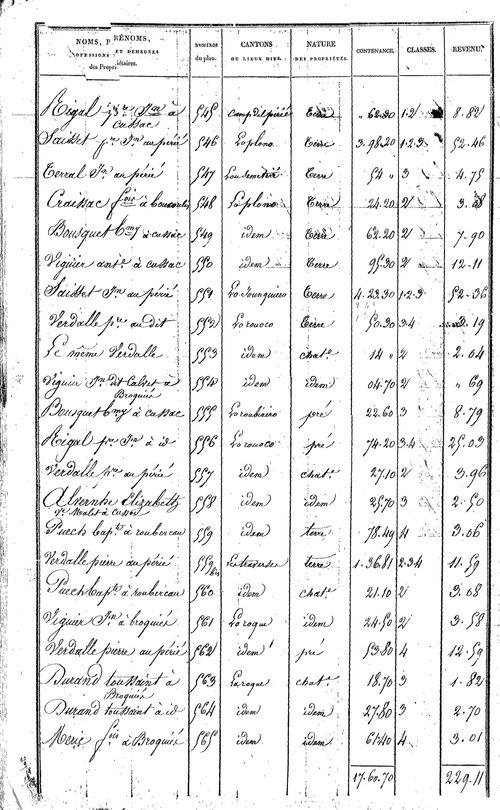 NOMS, PRÉNOMS, PROFESSIONS ET DEMEURES des Propriétaires. NUMÉROS du plan. CANTONS OU LIEUX DITS. NATURE DES PROPRIÉTÉS. CONTENANCE. CLASSES. REVENU.
Rigal Jn à cussac 545 camp del périé Terre " 62.30 1-2 8.82
Saisset pre Jn au périé 546 La plono Terre 3.98.20 1-2-3 52.46
Terral Jn au périé 547 Terre 54 " 3 4.75
Craissac fois à 548 La plono Terre 24.20 2 3.08
Bousquet bmy à cussac 549 idem Terre 62.20 2 7.90
Viguier ant.e à cussac 550 idem Terre 95.30 2 12.11
Saisset Jn au périé 551 Terre 4.23.30 1-2-3 52.36
Verdalle pre au dit 552 La rouoco Terre 50.30 3-4 3.19
Le même Verdalle 553 idem chat.e 14 " 2 2.04
Viguier Jn dit Cabset à Broquiés 554 idem idem 04.70 2 " 69
Bousquet bmy à cussac 555 La roubiairo pré 22.60 3 8.79
Rigal pre Jn à id 556 La rouoco pré 74.20 3-4 25.03
Verdalle pre au périé 557 idem chat.e 27.10 2 3.96
Alvernhe Elizabeth ve à cussac 558 idem idem 25.70 3 2.50
Puech bap.te à roubercau 559 idem terre 78.49 4 3.06
Verdalle pierre au périé 559 bis La traverse terre 1.36.81 2-3-4 11.59
Puech bap.te à roubereau 560 idem chat.e 21.10 2 3.08
Viguier Jn à broquiés 561 La roque idem 24.50 2 3.58
Verdalle pierre au périé 562 idem pré 53.80 4 12.59
Durand toussaint à Broquiés 563 La roque chat.e 18.70 3 1.82
Durand toussaint à id 564 idem idem 27.80 3 2.70
fois à Broquiés 565 idem idem 61.40 4 3.01
17.60.70 229.11